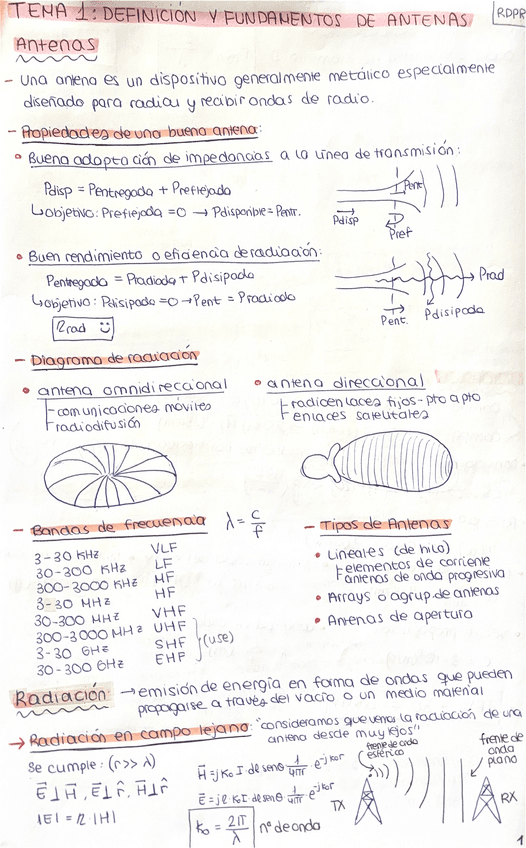 TEMA 1: DEFINICIÓN Y FUNDAMENTOS DE ANTENAS
RDPR
Antenas
- Una antena es un dispositivo generalmente metálico especialmente
diseñado para radiar y recibir ondas de radio.
- Propiedades de una buena antena:
• Buena adaptación de impedancias a la línea de transmisión:
Pdisp = Pentregada + Preflejada
↳objetivo: Preflejada = 0 → Pdisponible = Pentr.
Pent
Pdisp
Pref
• Buen rendimiento o eficiencia de radiación:
Pentregada = Pradiada + Pdisipada
↳objetivo: Pdisipada = 0 → Pent = Pradiada
Rrad
Prad
Pent.
Pdisipada
- Diagrama de radiación
• antena omnidireccional
comunicaciones móviles
radiodifusión
• antena direccional
radioenlaces fijos - pto a pto
enlaces satelitales
- Bandas de frecuencia λ = c/f
3-30 KHz VLF
30-300 KHz LF
300-3000 KHz MF
3-30 MHz HF
30-300 MHz VHF
300-3000 MHz UHF
3-30 GHz SHF
30-300 GHz EHF
(use)
- Tipos de Antenas
• Lineales (de hilo)
elementos de corriente
antenas de onda progresiva
• Arrays o agrup. de antenas
• Antenas de apertura
Radiación: → emisión de energía en forma de ondas que pueden
propagarse a través del vacío o un medio material
→ Radiación en campo lejano: "consideramos que vemos la radiación de una
antena desde muy lejos"
Se cumple: (r >> λ)
E⃗ ⊥ H⃗, E⃗ ⊥ r̂, H⃗ ⊥ r̂
|E| = η · |H|
H⃗ = j K₀ I dl senθ 1/4πr · e^-jk₀r
E⃗ = j η K₀ I dl senθ 1/4πr · e^-jk₀r
K₀ = 2π/λ nº de onda
frente de onda
esférico
frente de
onda
plano
TX
RX
1